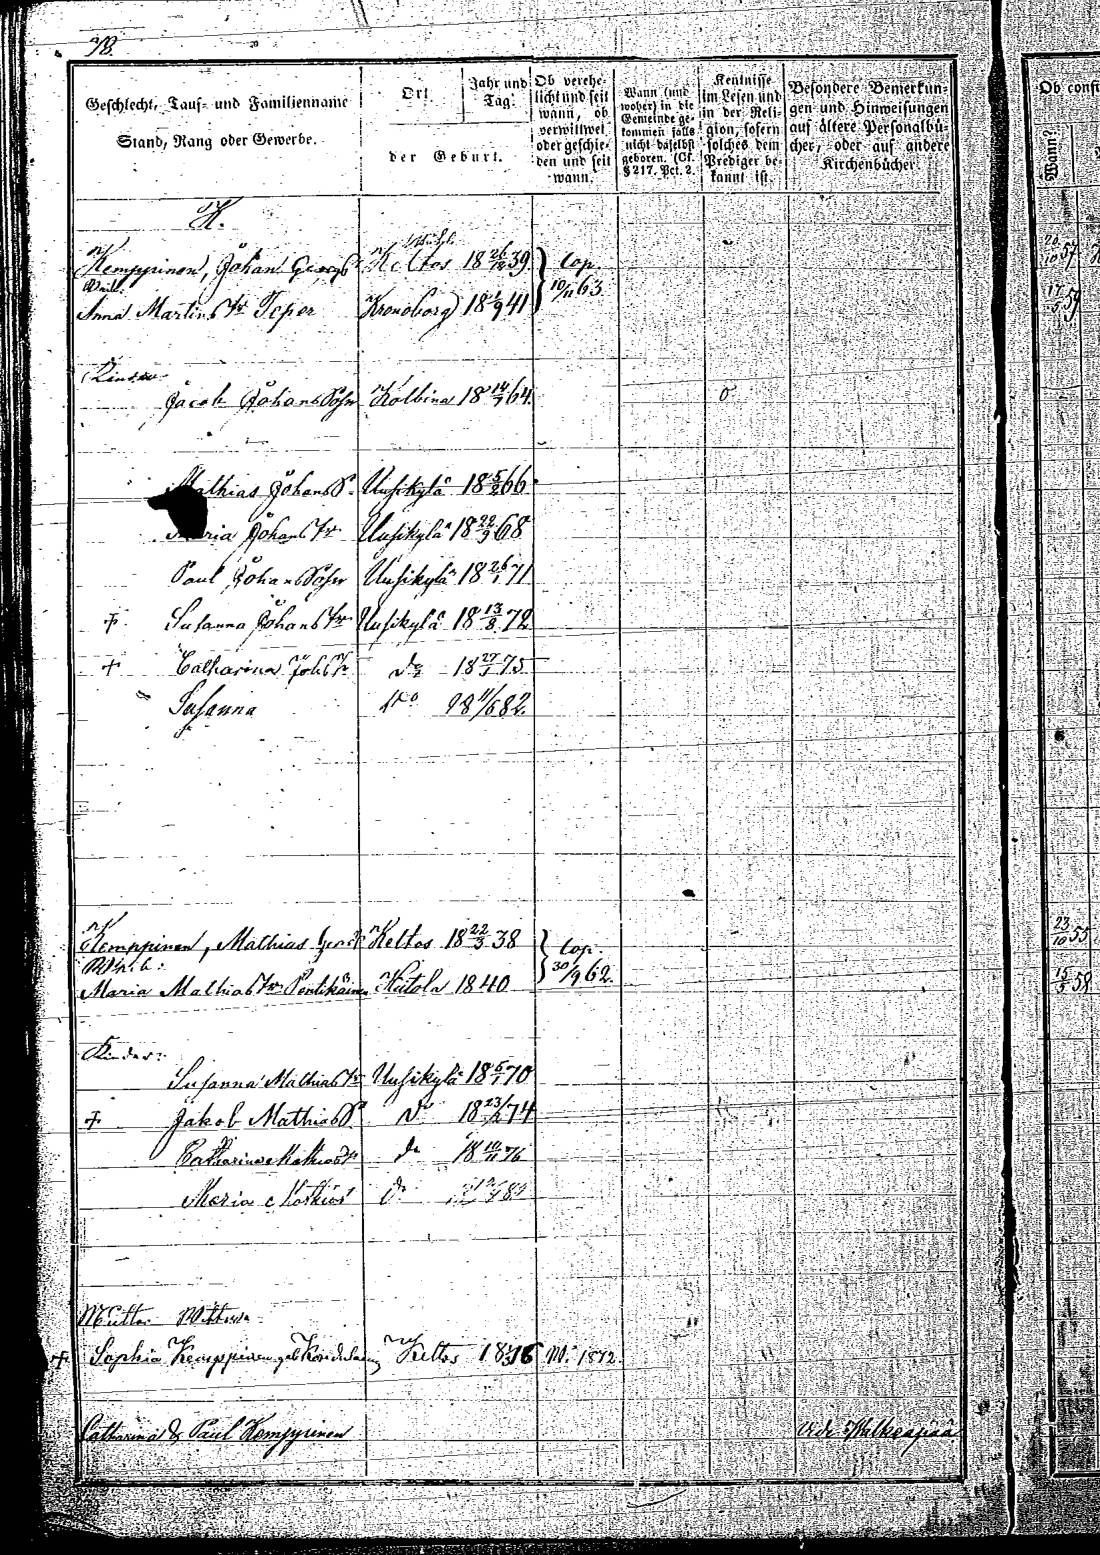 78.
Geschlecht, Tauf- und Familienname
Stand, Rang oder Gewerbe.
Ort
Jahr und
Tag.
der Geburt.
Ob verehe-
licht und seit
wann, ob
verwittwet
oder geschie-
den und seit
wann.
Wann (und
woher) in die
Gemeinde ge-
kommen falls
nicht daselbst
geboren. (Cf.
§ 217. Pct. 2.
Kentnisse
im Lesen und
in der Reli-
gion, sofern
solches dem
Prediger be-
kannt ist.
Besondere Bemerkun-
gen und Hinweisungen
auf ältere Personalbü-
cher, oder auf andere
Kirchenbücher
Ob confi
Wann?
K.
Kemppinen, Johan Georgs Keltos 18 26/12 39 Cop. 20/10 57
Weib:
Anna Martins Tr Teper Kronoborg 18 1/9 41 10/11 63 17/5 59
Kinder
Jacob Johans Sohn Kolbina 18 14/7 64
Mathias Johans S. Uusikylä 18 5/2 66
Maria Johans Tr Uusikylä 18 22/9 68
Paul Johans Sohn Uusikylä 18 26/1 71
+ Susanna Johans Tr Uusikylä 18 13/8 72
+ Catharina Joh. Tr do 18 27/1 75
Susanna do 18 11/6 82.
Kemppinen, Mathias Georgs Keltos 18 22/3 38 Cop. 23/10 55
Weib:
Maria Mathias Tr Pentikäinen Kutola 1840 30/9 62. 15/5 58
Kinder:
Susanna Mathias Tr Uusikylä 18 6/1 70
+ Jakob Mathias S. do 18 23/12 74
Catharina Mathias Tr do 18 10/11 76
Maria Mathias do
Mutter Wittwe
+ Sophia Kemppinen geb. Keltos 1816 W. 1872.
Catharina & Paul Kemppinen vide Walkeapää